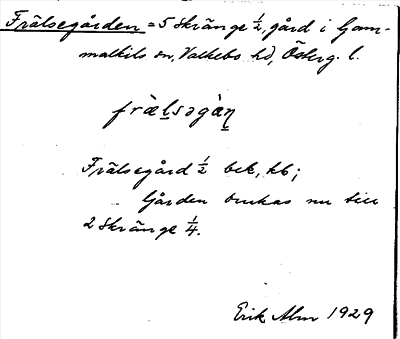 Frälsegården = 5 Skränge ½, gård i Gam-
malkils sn, Valkebo hd, Österg. l.
fràḻsəgàṉ
Frälsegård ½ bek, kb;
Gården brukas nu till
2 Skränge ¼.
Erik Alm 1929